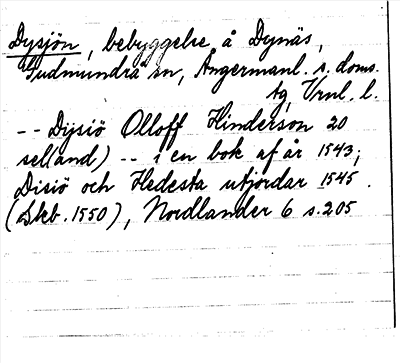 Dysjön, bebyggelse å Dynäs,
Gudmundrå sn, Ångermanl. s. doms.
tg, Vrnl. l.
-- Dysiö Olloff Hinderson 20
sel(and) -- i en bok af år 1543;
Disiö och Hedesta utjordar 1545.
(Skb. 1550), Nordlander 6 s. 205